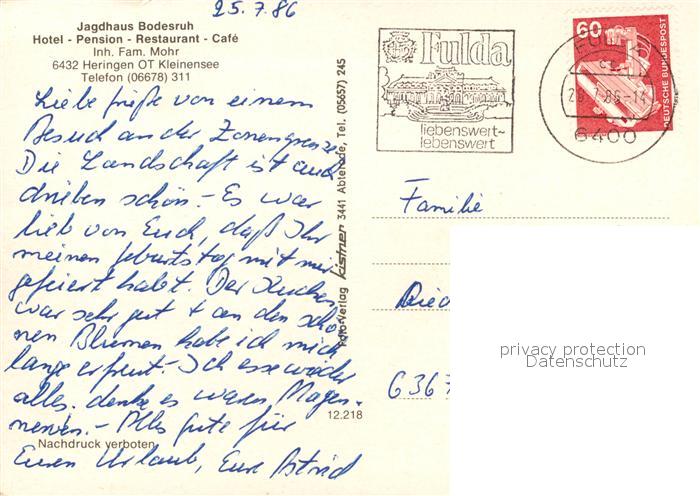 25.7.86
Jagdhaus Bodesruh
Hotel - Pension - Restaurant - Café
Inh. Fam. Mohr
6432 Heringen OT Kleinensee
Telefon (06678) 311
Liebe Grüße von einem
Besuch an der Zonengrenze.
Die Landschaft ist auch
drüben schön. - Es war
lieb von Euch, daß Ihr
meinen Geburtstag mit mir
gefeiert habt. Der Kuchen
war sehr gut + an den schö-
nen Blumen habe ich mich
lange erfreut. - Ich esse wieder
alles, denke es waren Magen-
nerven. - Alles gute für
Euren Urlaub, Eure Astrid
Nachdruck verboten
12.218
Foto-Verlag Kistner 3441 Abterode, Tel. (05657) 245
Fulda
liebenswert-
lebenswert
60
DEUTSCHE BUNDESPOST
6400
Familie
Ried
6367
privacy protection
Datenschutz